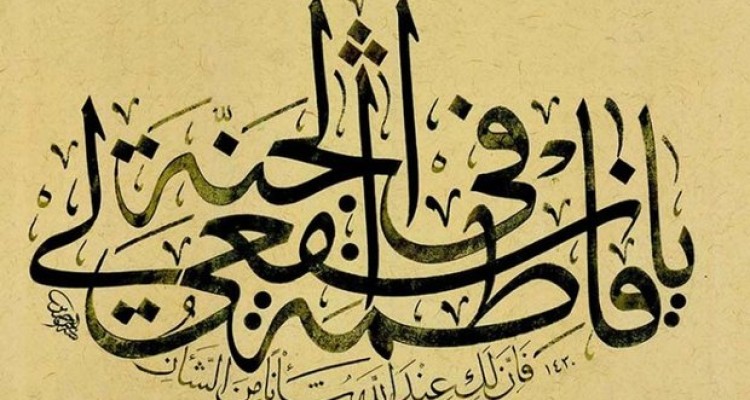 يا فاطمة اشفعي لي في الجنّة
فَإِنَّ لَكِ عِنْدَ اللهِ شَأْنًا مِنَ الشَّأْنِ